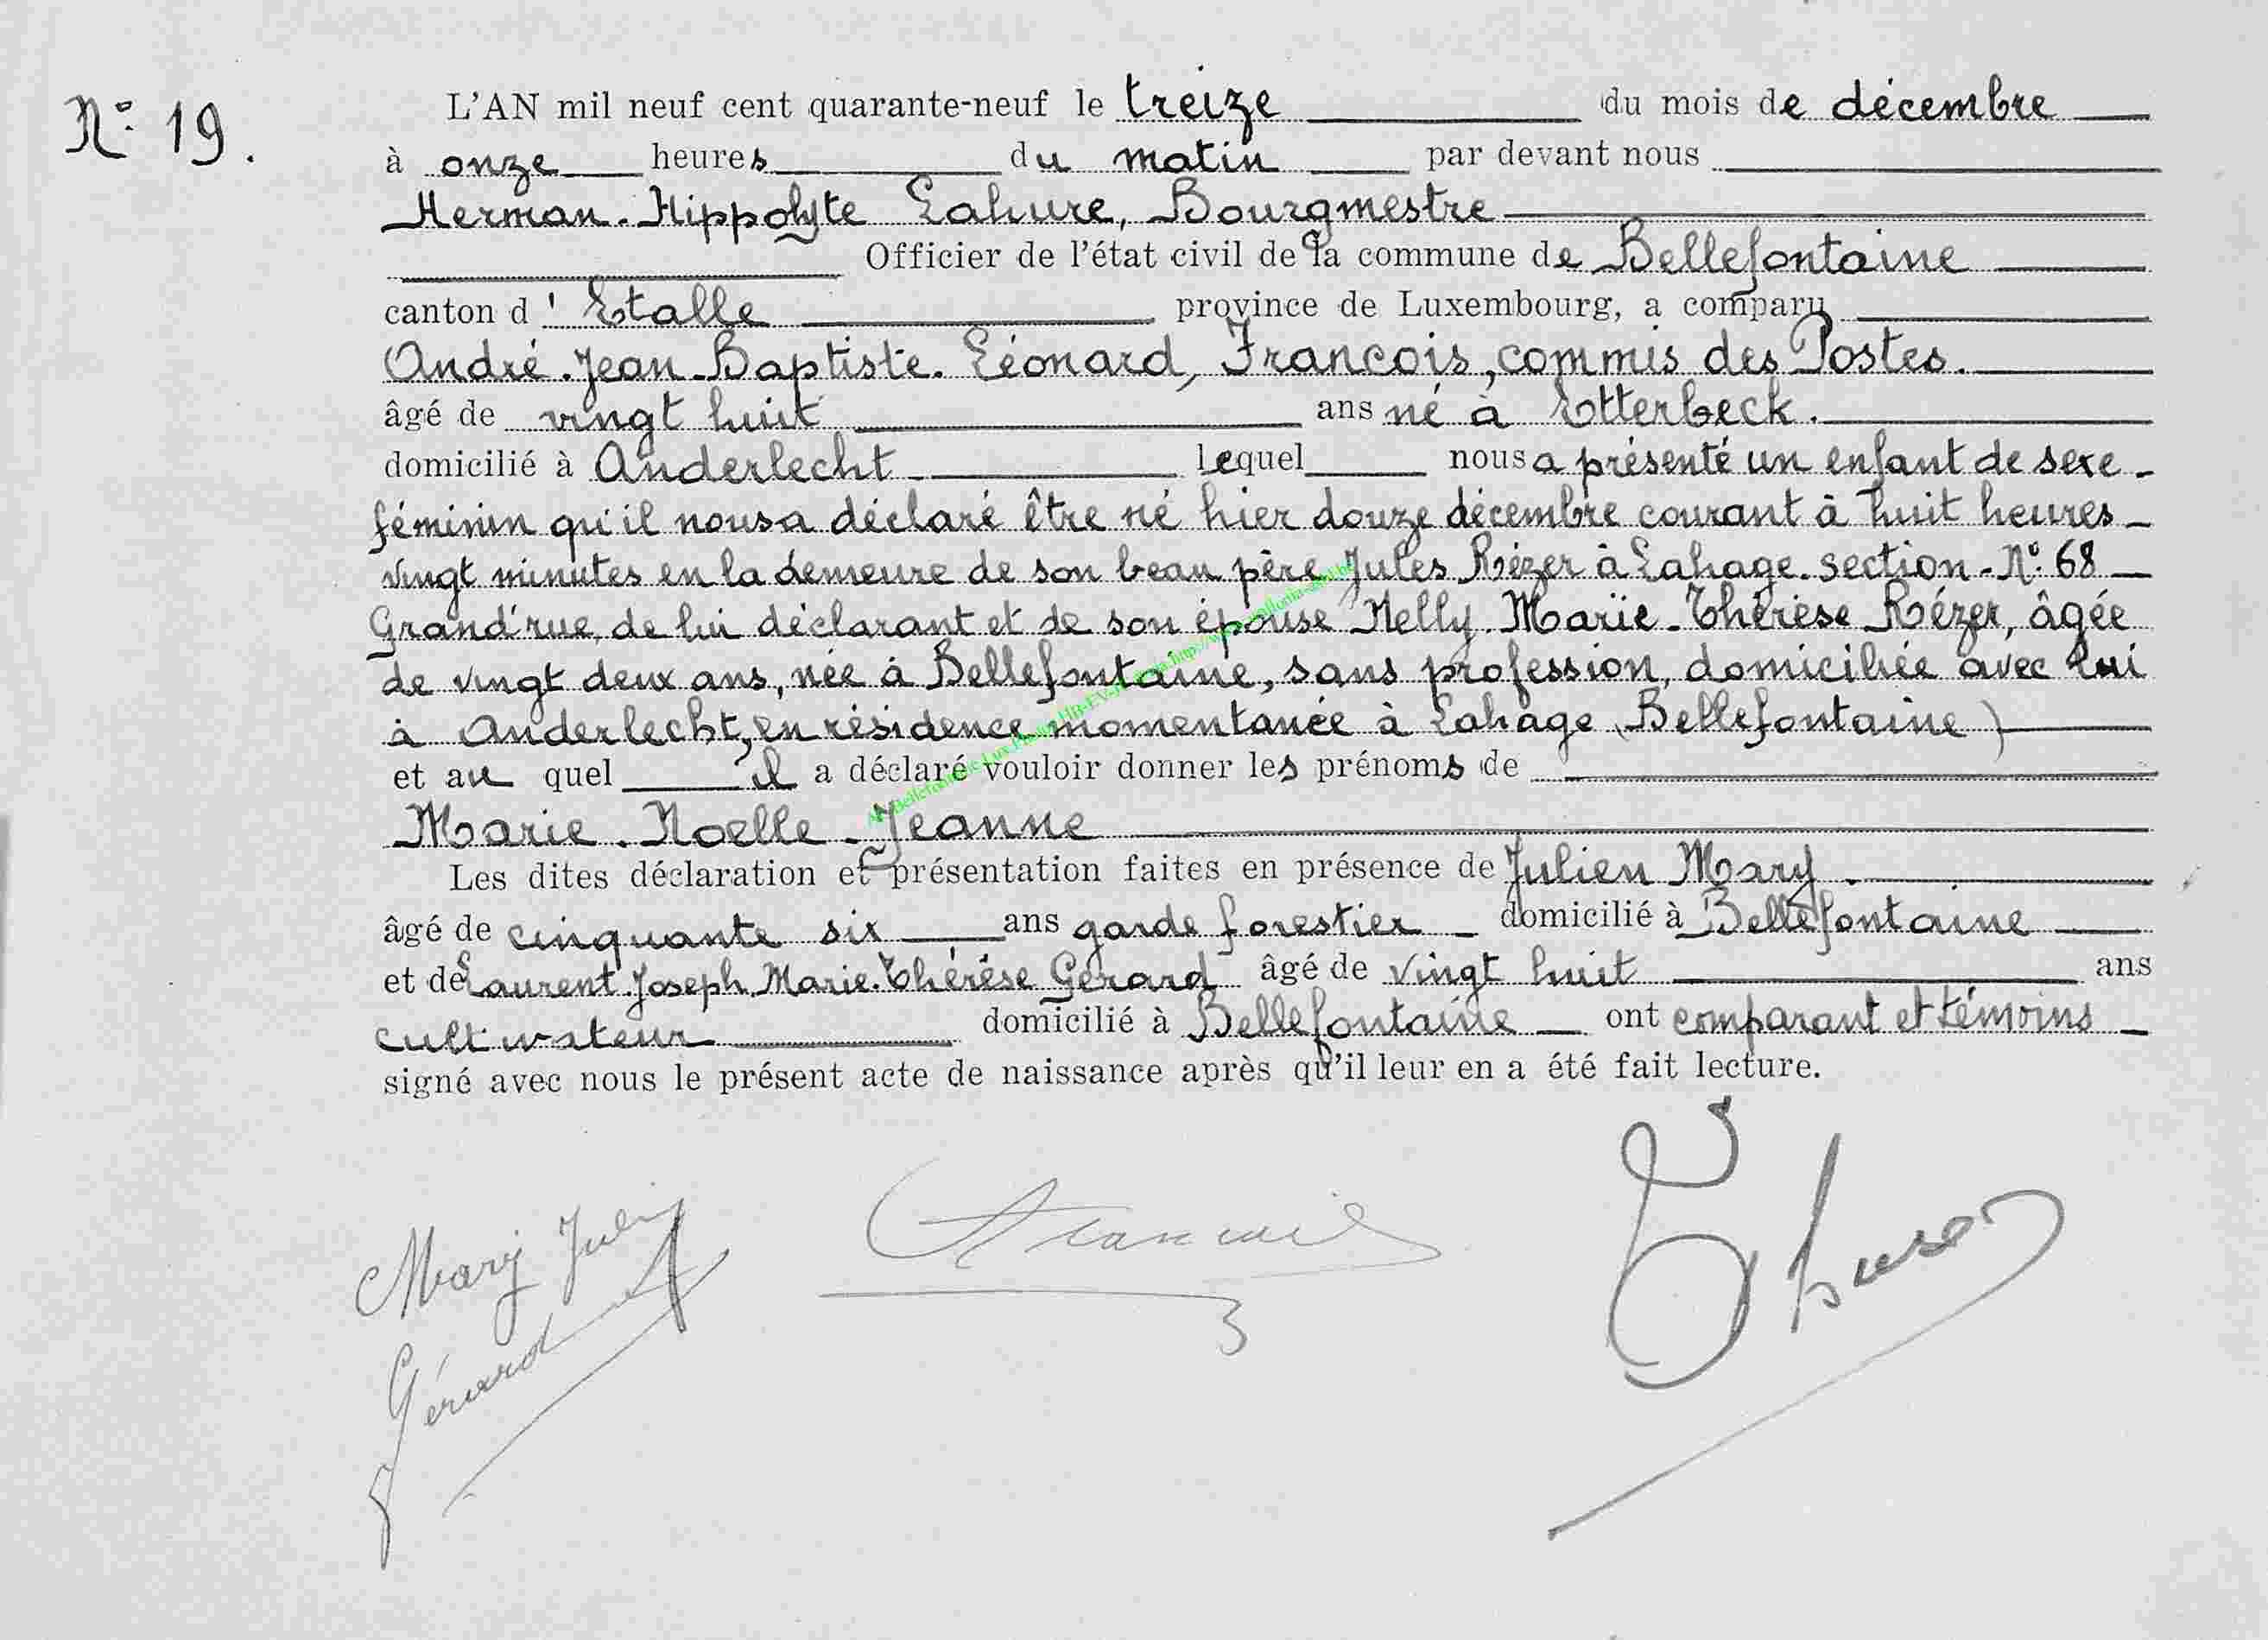 N° 19.
L'AN mil neuf cent quarante-neuf le treize du mois de décembre
à onze heures du matin par devant nous
Herman-Hippolyte Lahure, Bourgmestre
Officier de l'état civil de la commune de Bellefontaine
canton d'Etalle province de Luxembourg, a comparu
André-Jean-Baptiste-Léonard, Francois, commis des Postes.
âgé de vingt huit ans né à Etterbeck.
domicilié à Anderlecht lequel nous a présenté un enfant de sexe
féminin qu'il nous a déclaré être né hier douze décembre courant à huit heures
vingt minutes en la demeure de son beau père Jules Rézer à Lahage-section-N° 68
Grand'rue, de lui déclarant et de son épouse Nelly-Marie-Thérèse Rézer, âgée
de vingt deux ans, née à Bellefontaine, sans profession, domiciliée avec lui
à Anderlecht, en résidence momentanée à Lahage (Bellefontaine)
et au quel il a déclaré vouloir donner les prénoms de
Marie-Noelle-Jeanne
Les dites déclaration et présentation faites en présence de Julien Mary.
âgé de cinquante six ans garde forestier domicilié à Bellefontaine
et de Laurent-Joseph-Marie-Thérèse Gérard âgé de vingt huit ans
cultivateur domicilié à Bellefontaine ont comparant et témoins
signé avec nous le présent acte de naissance après qu'il leur en a été fait lecture.
Mary Julien
Gérard